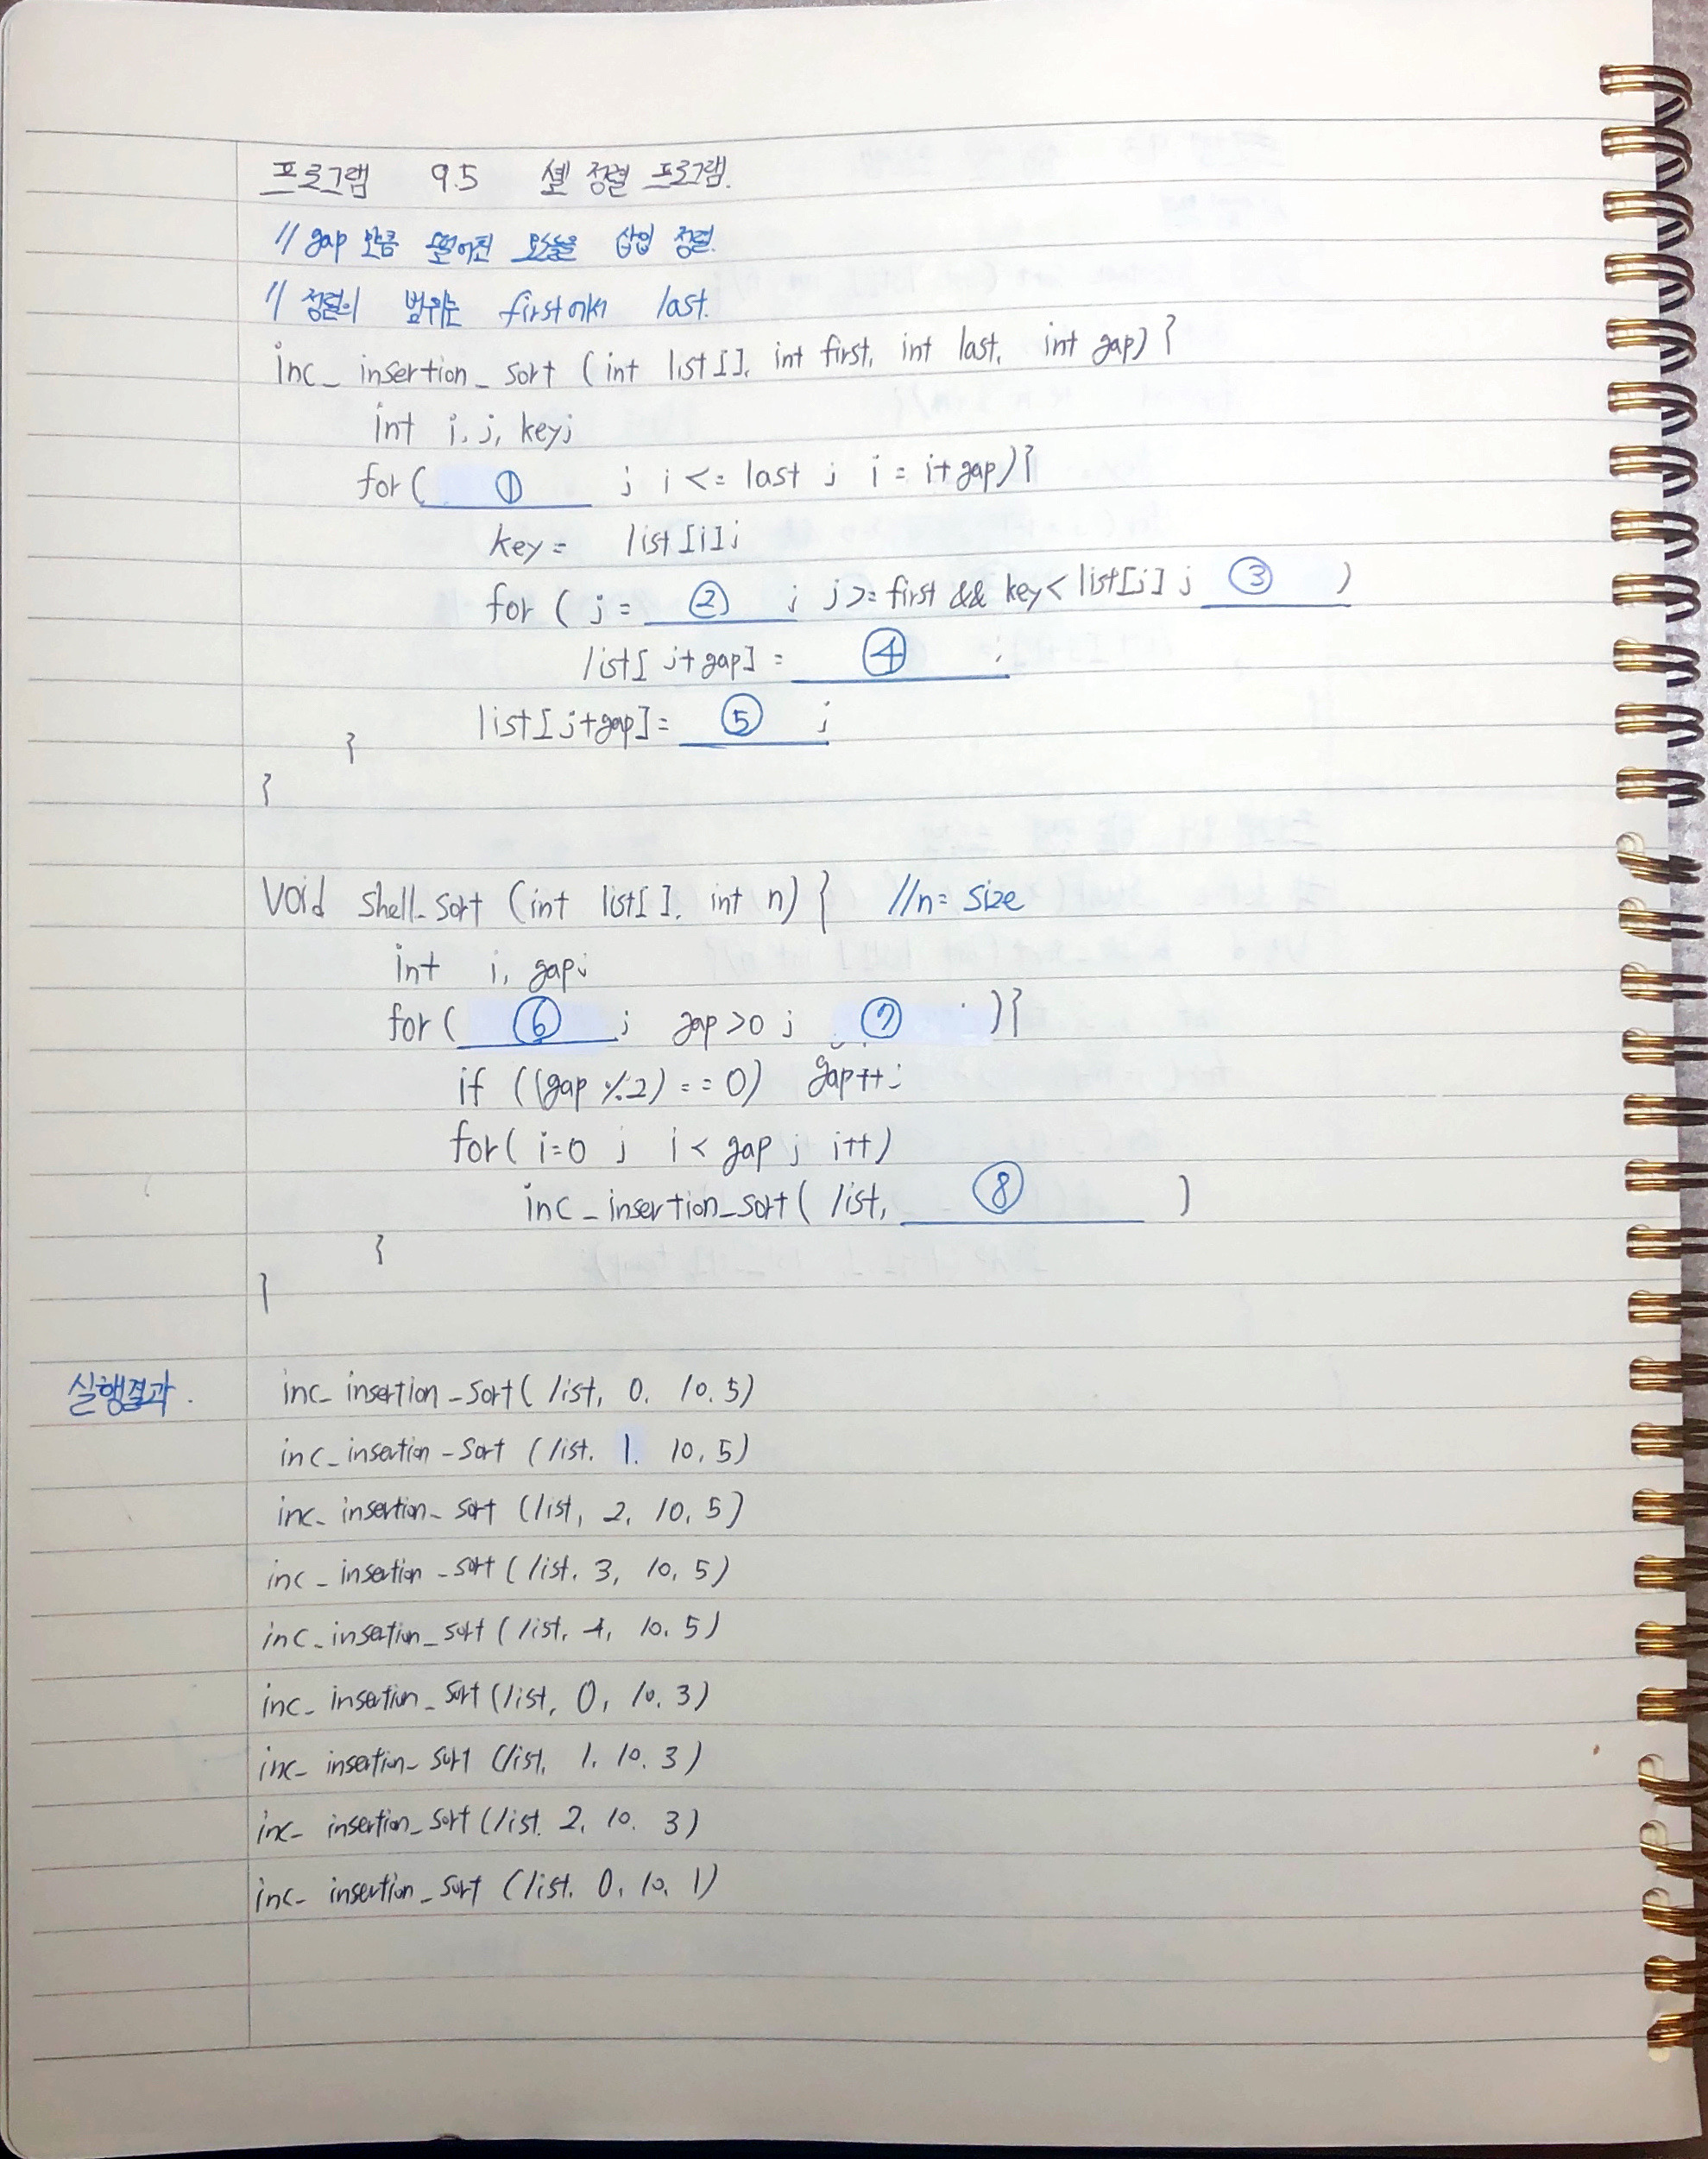 프로그램 9.5 셸 정렬 프로그램.
// gap 만큼 떨어진 요소들을 삽입 정렬.
// 정렬의 범위는 first에서 last.
inc_insertion_sort (int list[], int first, int last, int gap) {
int i, j, key;
for( ① ; i <= last ; i = i+gap){
key = list[i];
for ( j = ② ; j >= first && key < list[j] ; ③ )
list[ j+gap] = ④ ;
list[j+gap] = ⑤ ;
}
}
Void shell_sort (int list[], int n) { //n= size
int i, gap;
for( ⑥ ; gap >0 ; ⑦ ){
if ((gap %2) == 0) gap++;
for( i=0 ; i < gap ; i++)
inc_insertion_sort( list, ⑧ )
}
}
실행결과. inc_insertion_sort( list, 0, 10, 5)
inc_insertion_sort (list, 1, 10, 5)
inc_insertion_sort (list, 2, 10, 5)
inc_insertion_sort (list, 3, 10, 5)
inc_insertion_sort (list, 4, 10, 5)
inc_insertion_sort (list, 0, 10, 3)
inc_insertion_sort (list, 1, 10, 3)
inc_insertion_sort (list, 2, 10, 3)
inc_insertion_sort (list, 0, 10, 1)